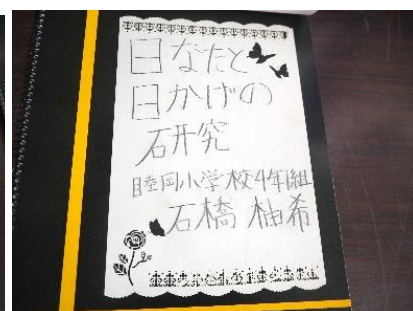 日なたと
日かげの
研究
睦岡小学校4年1組
石橋 柚希